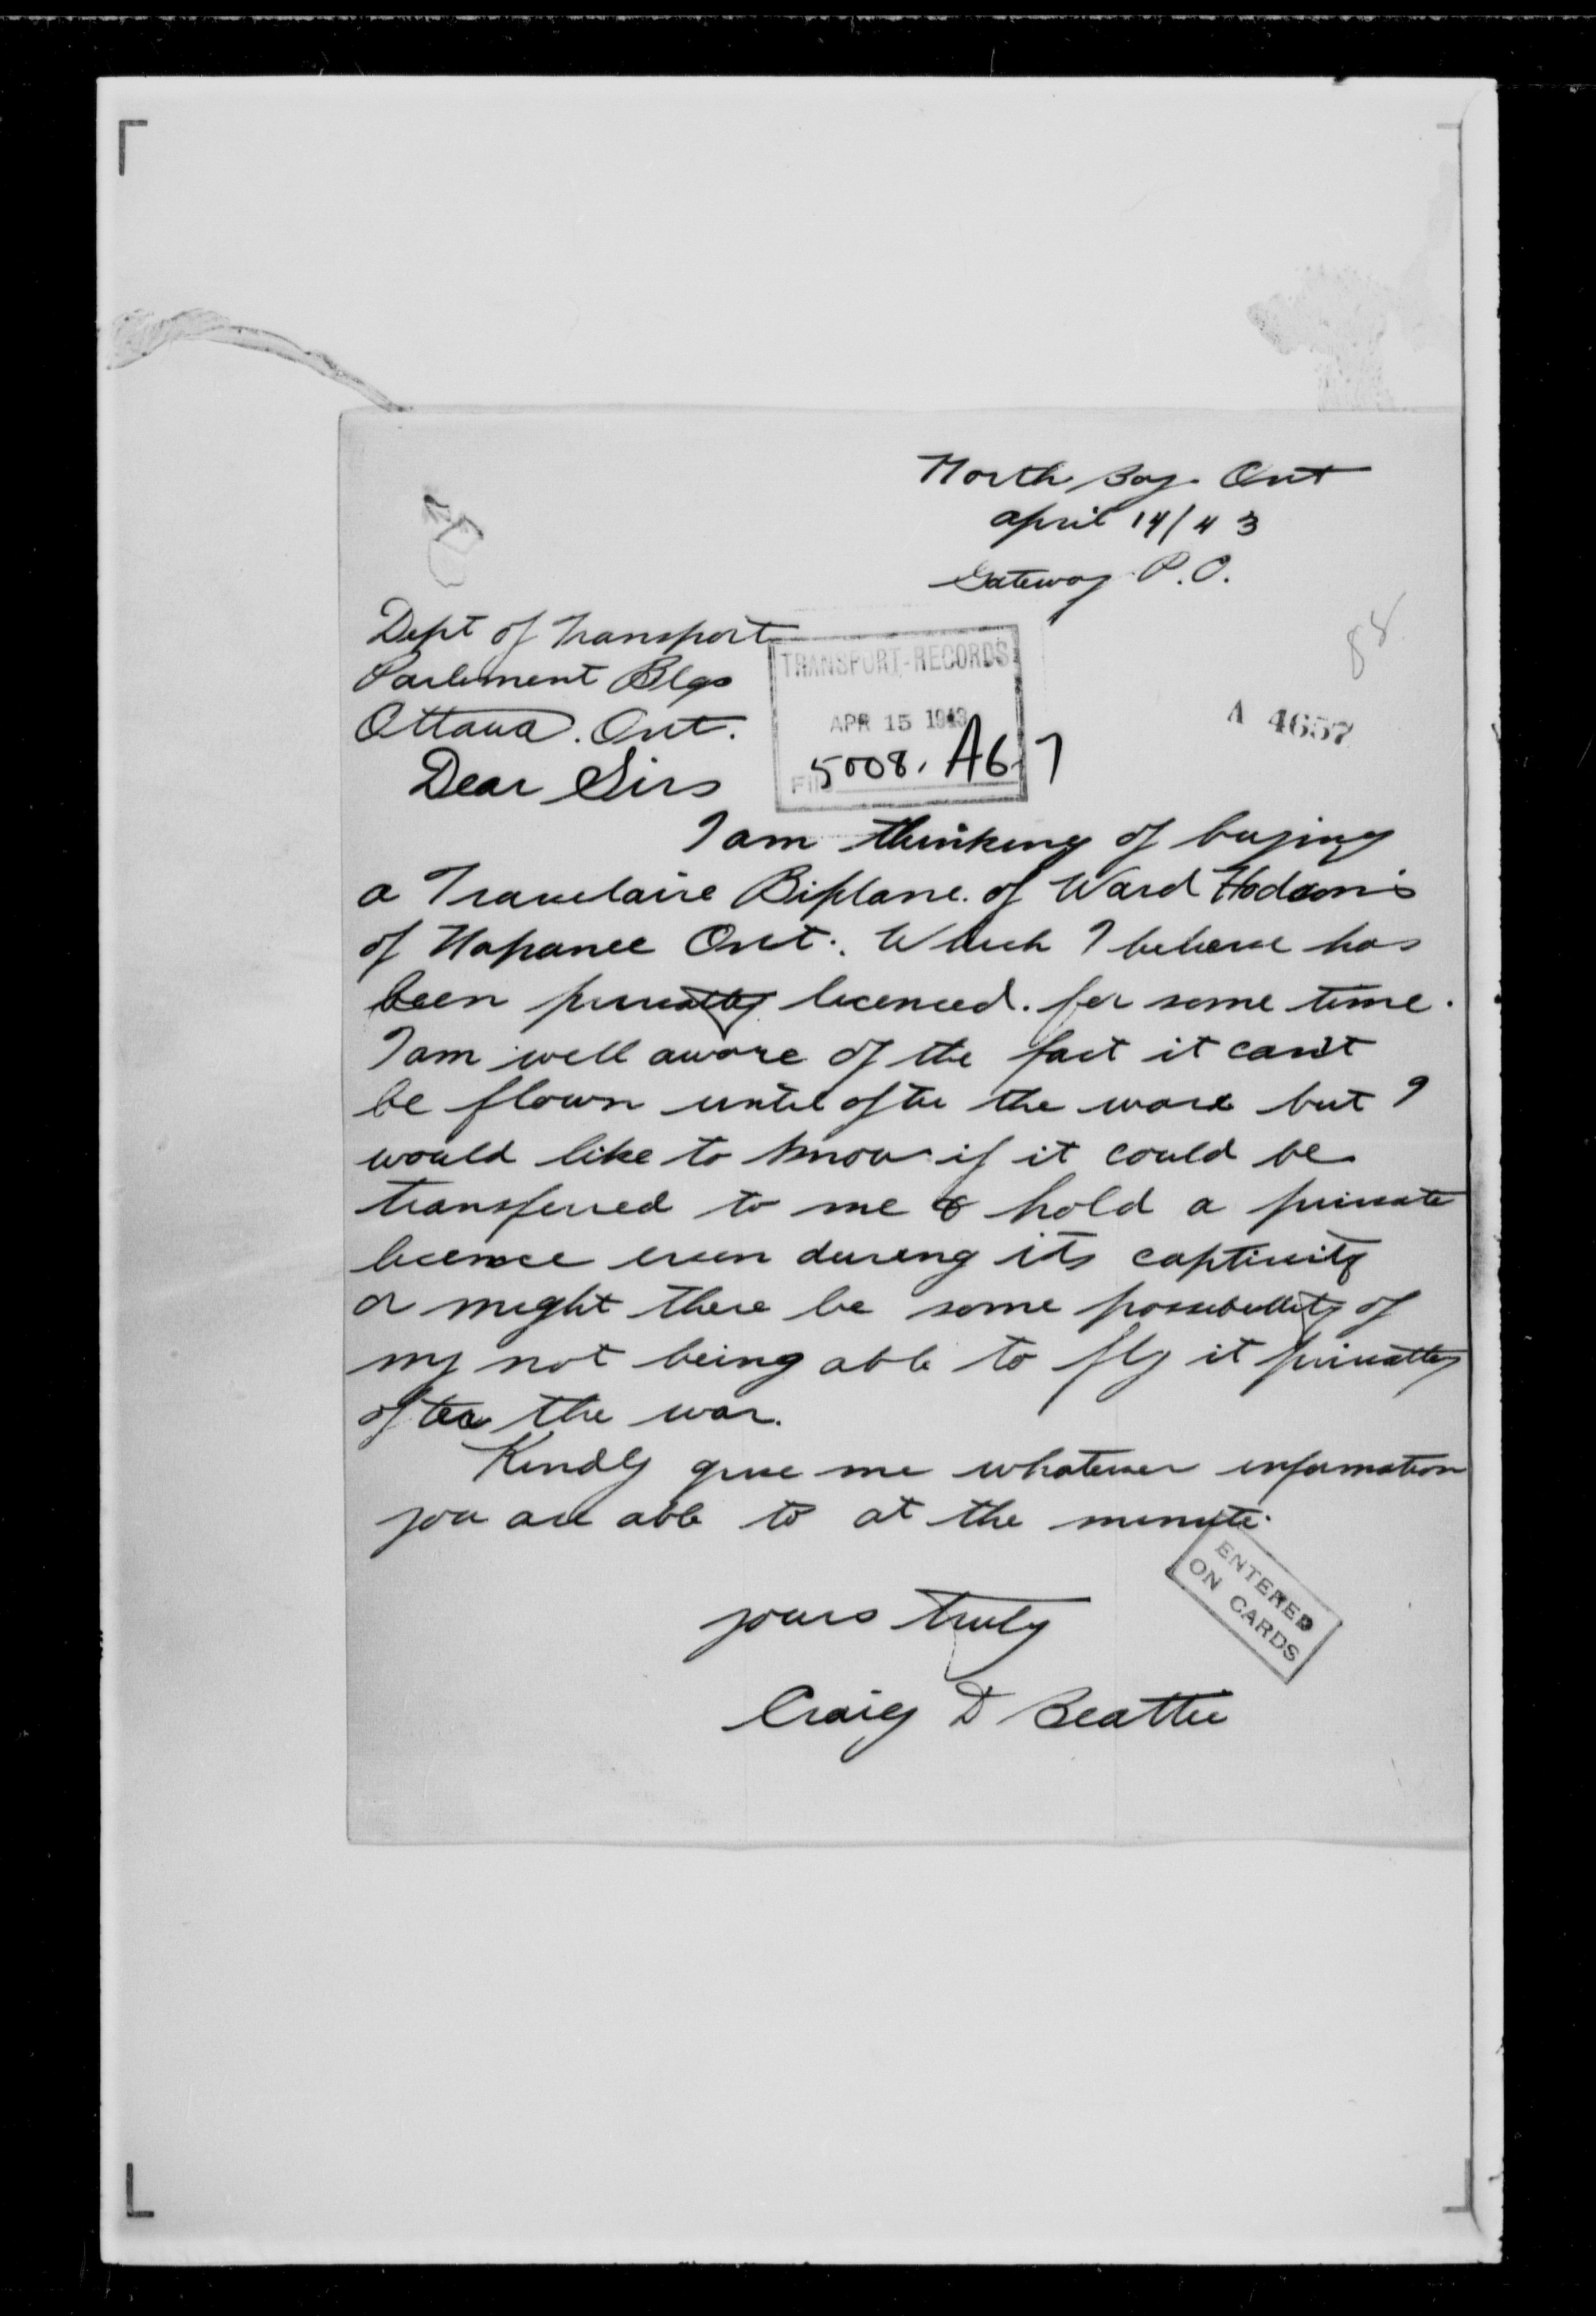 North Bay. Ont
april 14/43
Gateway P.O.
Dept of Transport
Parlement Blgs
Ottawa. Ont.
TRANSPORT-RECORDS
APR 15 1943
5008. A67
FILE
88
A 4657
Dear Sirs
I am thinking of buying
a Travelaire Biplane. of Ward Hodson's
of Napanee Ont. Which I believe has
been privatly licenced. for some time.
I am well aware of the fact it can't
be flown until after the war but I
would like to know if it could be
transferred to me & hold a private
licence even during its captivity
or might there be some possibility of
my not being able to fly it privatly
after the war.
Kindly give me whatever information
you are able to at the minute.
ENTERED
ON CARDS
yours truly
Craig D Beattie